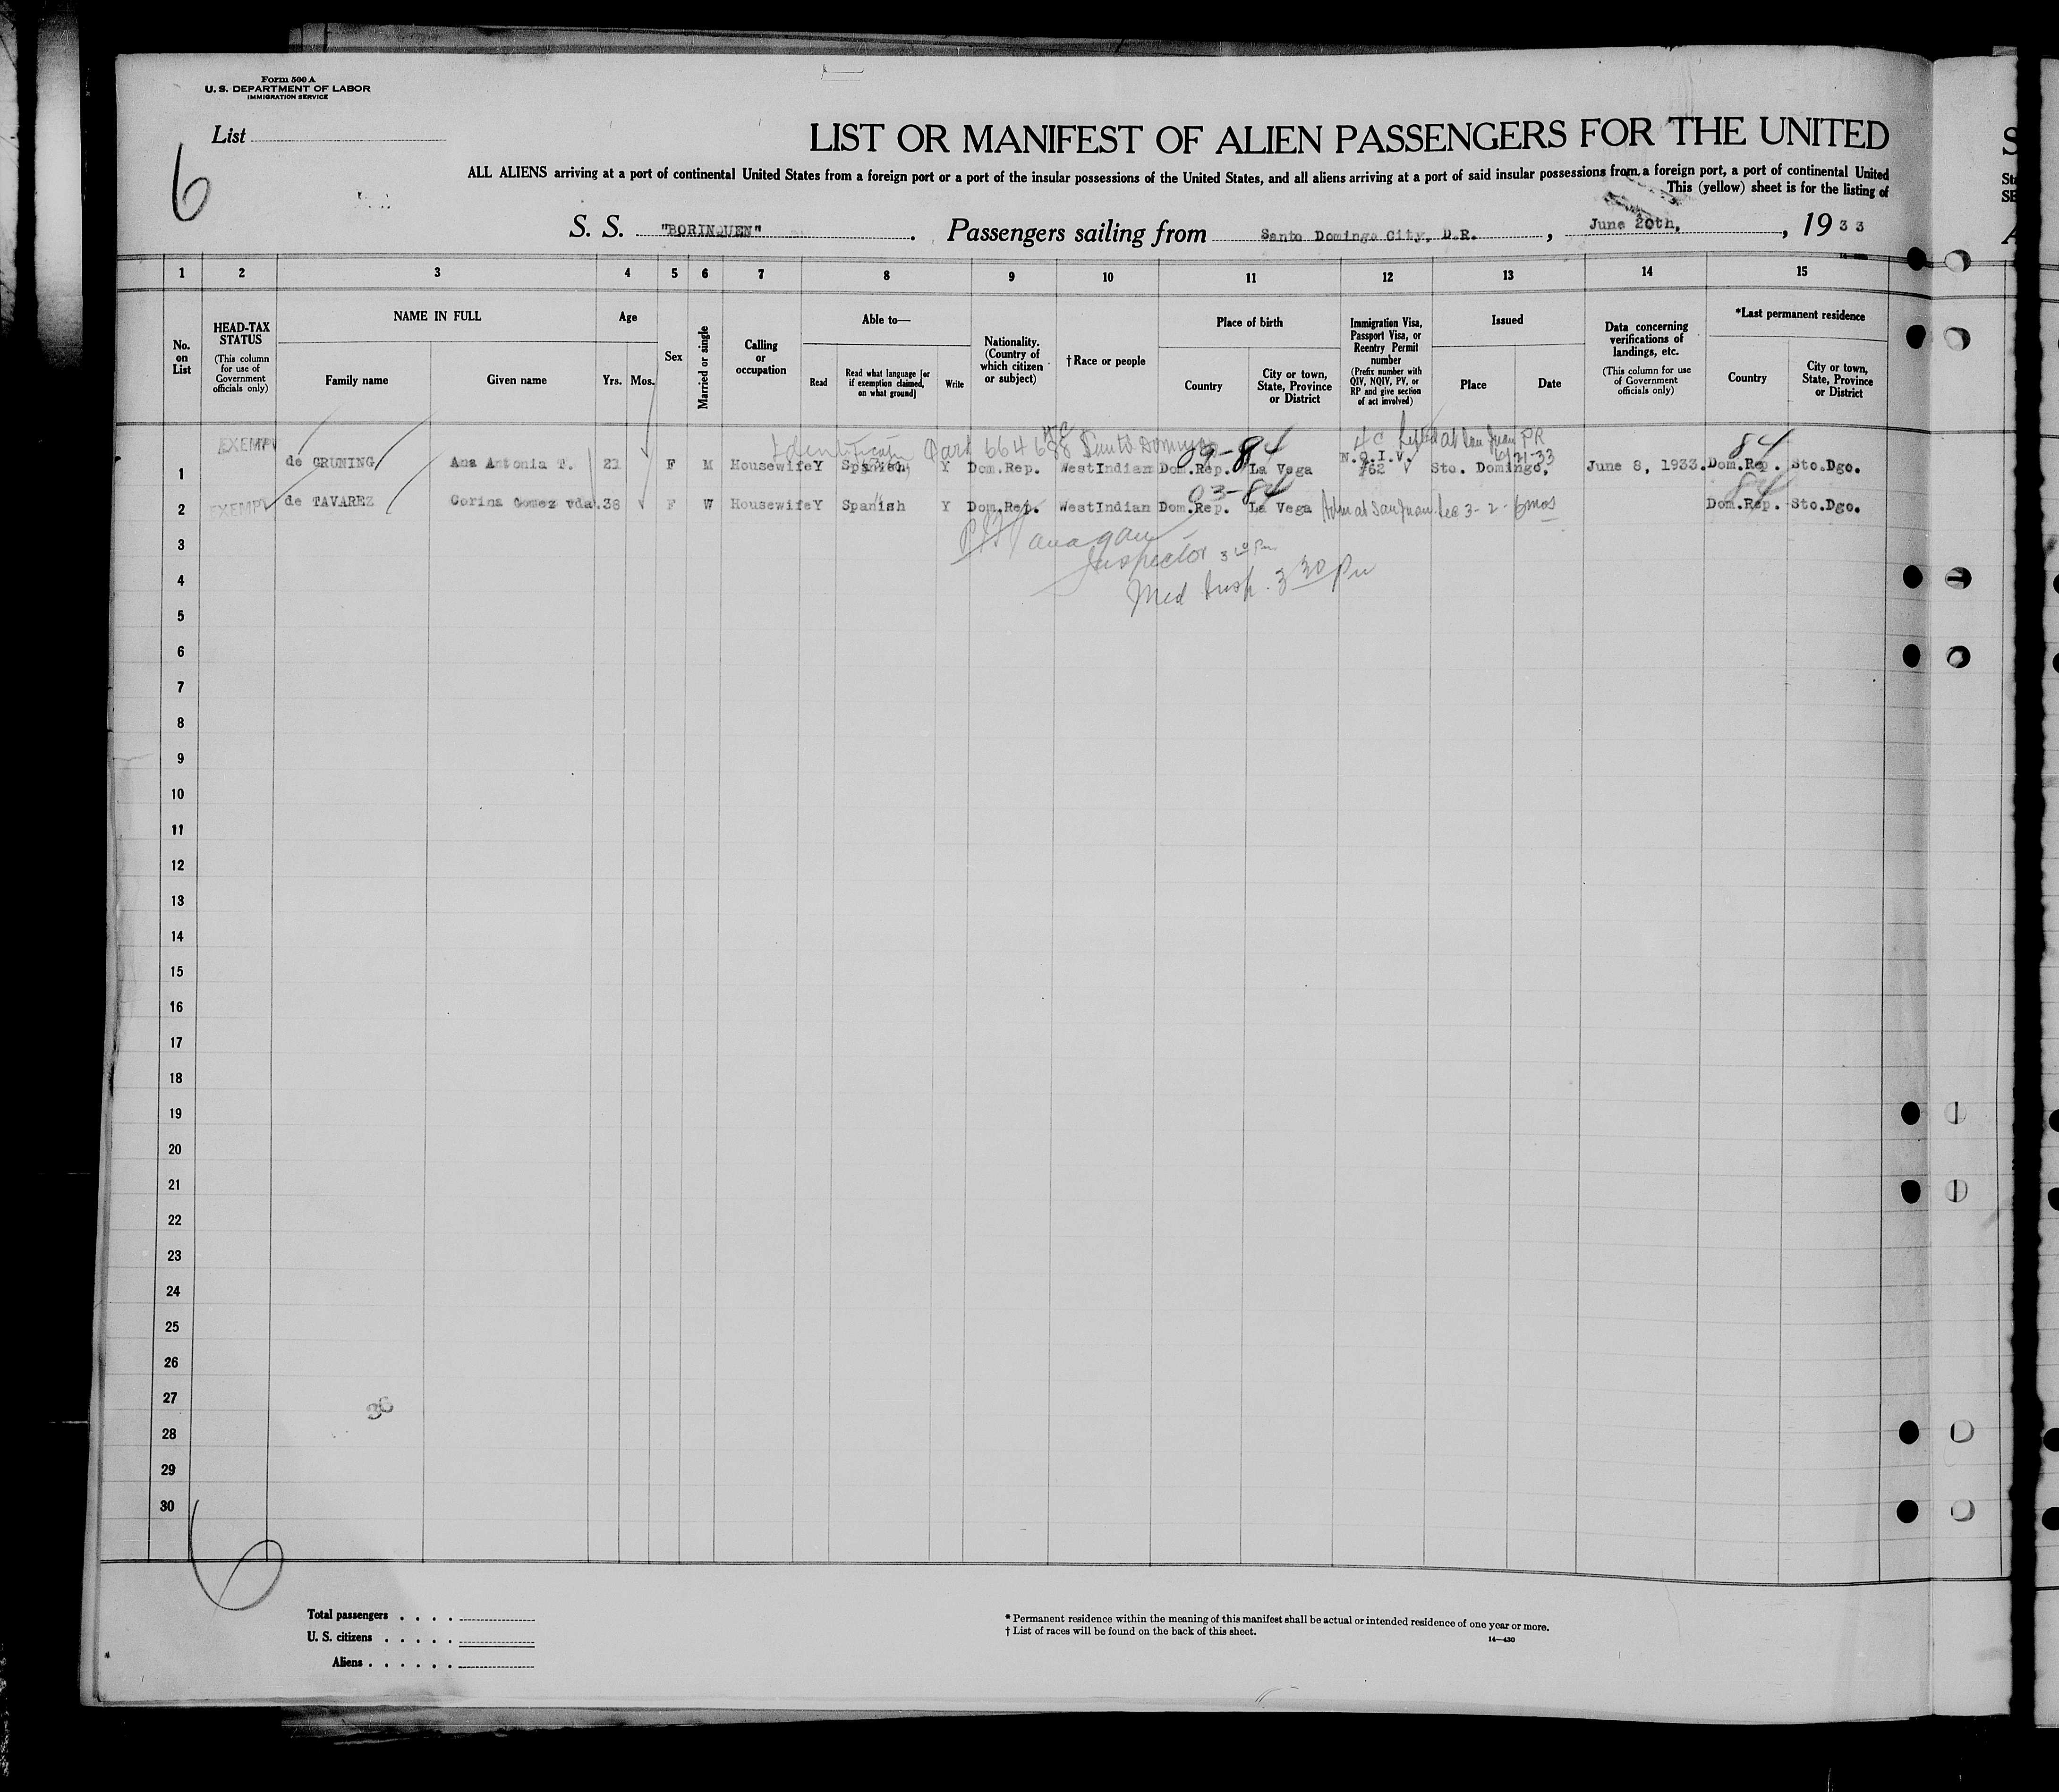 Form 500 A
U. S. DEPARTMENT OF LABOR
IMMIGRATION SERVICE
List
6
LIST OR MANIFEST OF ALIEN PASSENGERS FOR THE UNITED
ALL ALIENS arriving at a port of continental United States from a foreign port or a port of the insular possessions of the United States, and all aliens arriving at a port of said insular possessions from a foreign port, a port of continental United
This (yellow) sheet is for the listing of
S. S. "BORINQUEN". Passengers sailing from Santo Domingo City, D.R., June 20th, 1933
1 2 3 4 5 6 7 8 9 10 11 12 13 14 15
No. on List
HEAD-TAX STATUS (This column for use of Government officials only)
NAME IN FULL
Family name
Given name
Age
Yrs. Mos.
Sex
Married or single
Calling or occupation
Able to—
Read
Read what language [or if exemption claimed, on what ground]
Write
Nationality. (Country of which citizen or subject)
†Race or people
Place of birth
Country
City or town, State, Province or District
Immigration Visa, Passport Visa, or Reentry Permit number (Prefix number with QIV, NQIV, PV, or RP and give section of act involved)
Issued
Place
Date
Data concerning verifications of landings, etc. (This column for use of Government officials only)
*Last permanent residence
Country
City or town, State, Province or District
Card 664688 Santo Domingo 09-84 4c at San Juan PR 6/21-33 84
1 EXEMPT de GRUNING Ana Antonia T. 21 F M Housewife Y Spanish Y Dom.Rep. WestIndian Dom.Rep. La Vega N.Q.I.V. 762 Sto. Domingo, June 8, 1933. Dom.Rep. Sto.Dgo.
03-84 84
2 EXEMPT de TAVAREZ Corina Gomez vda. 38 F W Housewife Y Spanish Y Dom.Rep. WestIndian Dom.Rep. La Vega Adm at San Juan Sec 3-2-6mos Dom.Rep. Sto.Dgo.
3
Inspector
4
Med Insp. 3 30 Pm
5
6
7
8
9
10
11
12
13
14
15
16
17
18
19
20
21
22
23
24
25
26
27
28
29
30
6
Total passengers
U. S. citizens
Aliens
* Permanent residence within the meaning of this manifest shall be actual or intended residence of one year or more.
† List of races will be found on the back of this sheet.
14—430